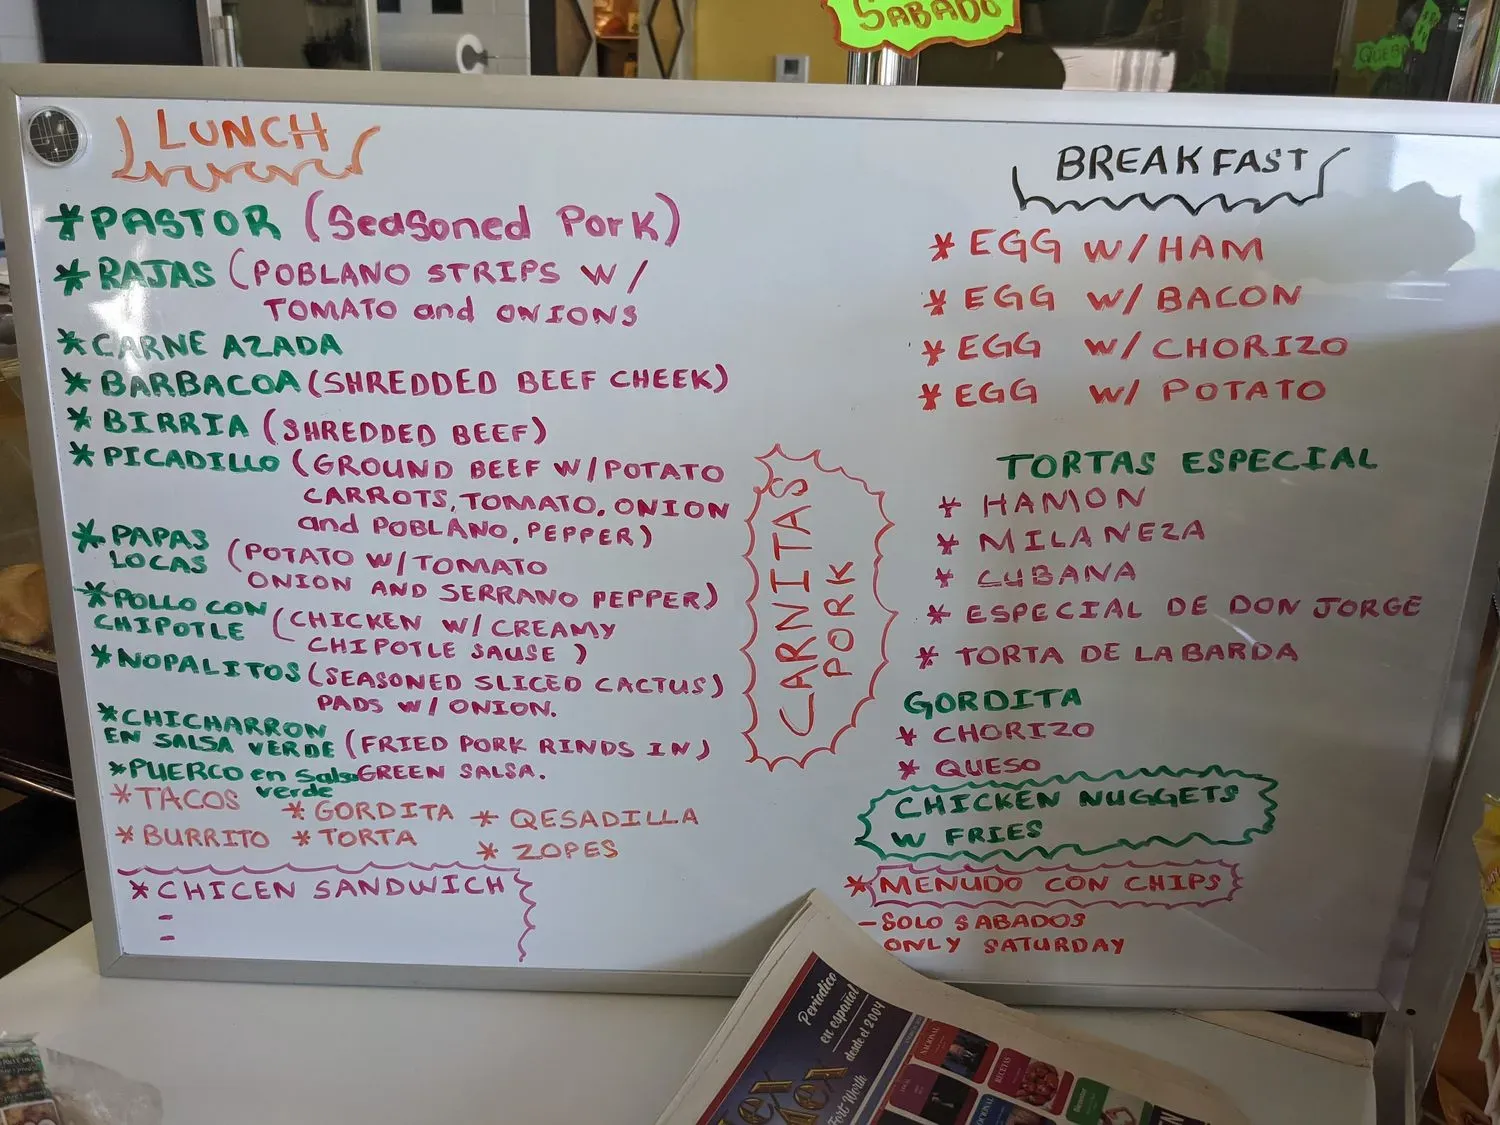 SABADO
LUNCH
*PASTOR (Seasoned Pork)
*RAJAS (POBLANO STRIPS W/
TOMATO and ONIONS
*CARNE AZADA
*BARBACOA (SHREDDED BEEF CHEEK)
*BIRRIA (SHREDDED BEEF)
*PICADILLO (GROUND BEEF W/POTATO
CARROTS, TOMATO, ONION
and POBLANO, PEPPER)
*PAPAS
LOCAS (POTATO W/TOMATO
ONION AND SERRANO PEPPER)
*POLLO CON
CHIPOTLE (CHICKEN W/CREAMY
CHIPOTLE SAUSE)
*NOPALITOS (SEASONED SLICED CACTUS)
PADS W/ONION.
*CHICHARRON
EN SALSA VERDE (FRIED PORK RINDS IN)
GREEN SALSA.
*PUERCO en Salsa
verde
*TACOS *GORDITA *QESADILLA
*BURRITO *TORTA *ZOPES
*CHICEN SANDWICH
-
-
CARNITAS
PORK
BREAKFAST
*EGG W/HAM
*EGG W/BACON
*EGG W/CHORIZO
*EGG W/ POTATO
TORTAS ESPECIAL
*HAMON
*MILANEZA
*CUBANA
*ESPECIAL DE DON JORGE
*TORTA DE LA BARDA
GORDITA
*CHORIZO
*QUESO
CHICKEN NUGGETS
W FRIES
*MENUDO CON CHIPS
-SOLO SABADOS
ONLY SATURDAY
Periodico
en español
desde el 2004
Fort Worth
NACIONAL
RECETAS